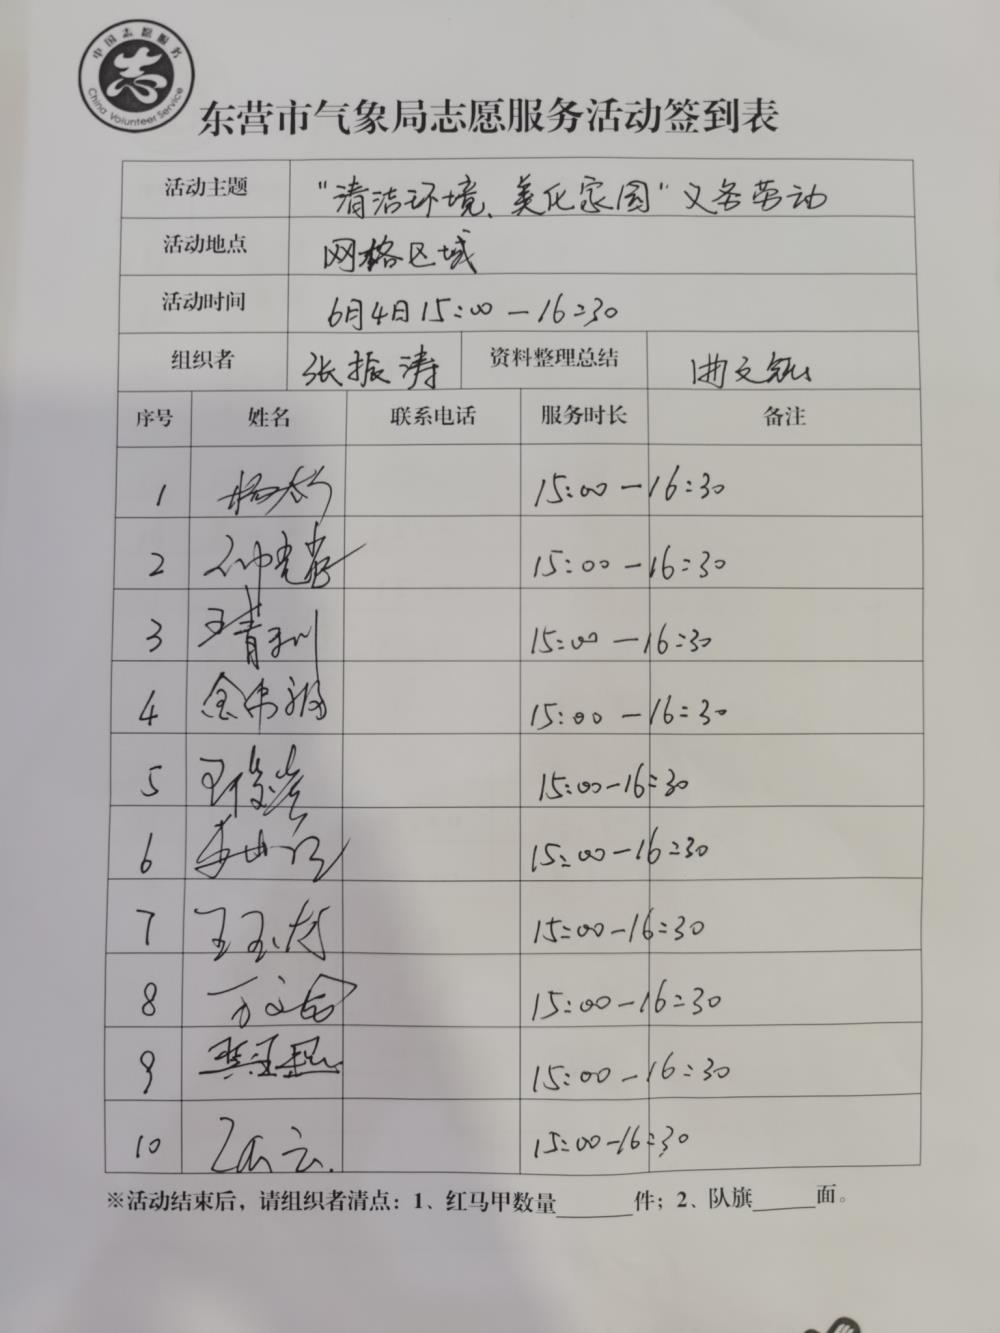 中国志愿服务
志
China Volunteer Service
东营市气象局志愿服务活动签到表
活动主题 “清洁环境、美化家园”义务劳动
活动地点 网格区域
活动时间 6月4日15:00—16:30
组织者 张振涛 资料整理总结 曲文
序号 姓名 联系电话 服务时长 备注
1 15:00—16:30
2 15:00—16:30
3 王青利 15:00—16:30
4 15:00—16:30
5 王俊岩 15:00—16:30
6 15:00—16:30
7 王玉 15:00—16:30
8 万文 15:00—16:30
9 15:00—16:30
10 15:00—16:30
※活动结束后，请组织者清点：1、红马甲数量______件；2、队旗_____面。